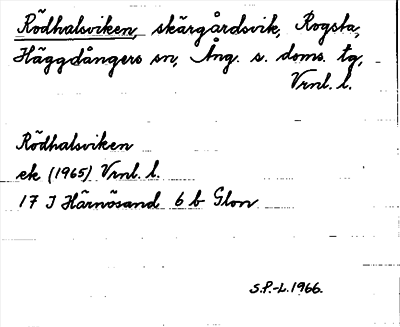 Rödhalsviken, skärgårdsvik, Rogsta,
Häggdångers sn, Ång. s. doms. tg,
Vrnl. l.
Rödhalsviken
ek (1965) Vrnl. l.
17 J Härnösand 6 b Glon
S.P.-L. 1966.